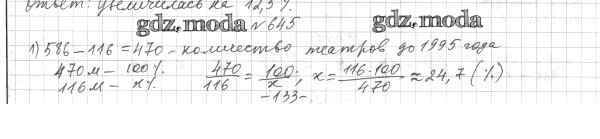 ответ: увеличилась на 12,5 %.
gdz.moda №645 gdz.moda
1) 586 – 116 = 470 – количество театров до 1995 года
470 м – 100 %. 470/116 = 100/x; x = 116·100/470 ≈ 24,7 (%)
116 м – x %.
–133–